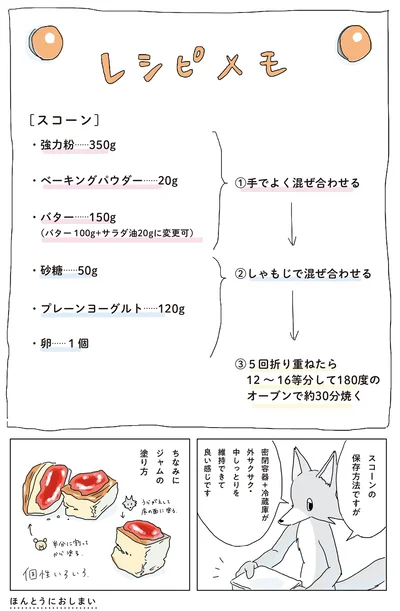 レシピメモ
［スコーン］
・強力粉……350g
・ベーキングパウダー……20g
・バター……150g
（バター100g+サラダ油20gに変更可）
・砂糖……50g
・プレーンヨーグルト……120g
・卵……１個
①手でよく混ぜ合わせる
②しゃもじで混ぜ合わせる
③５回折り重ねたら
12～16等分して180度の
オーブンで約30分焼く
スコーンの
保存方法ですが
密閉容器＋冷蔵庫が
外サクサク・
中しっとりを
維持できて
良い感じです
ちなみに
ジャムの
塗り方
うらがえして
底の面に塗る。
半分に割って
から塗る。
個性いろいろ。
ほんとうにおしまい